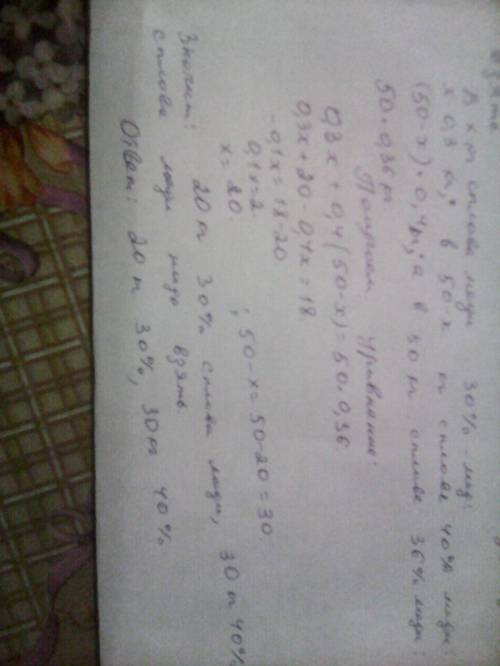 взять
В х т сплава меди 30% - меди
х 0,3 т, в 50-х т сплаве 40% меди
(50-х)·0,4 т; а в 50 т сплаве 36% меди:
50·0,36 т
Получаем уравнение:
0,3х + 0,4(50-х) = 50·0,36
0,3х + 20 - 0,4х = 18
-0,1х = 18-20
0,1х=2
х = 20 ; 50-х=50-20=30
Значит: 20 т 30% сплава меди, 30 т 40%
сплава меди надо взять
Ответ: 20 т 30%, 30т 40%